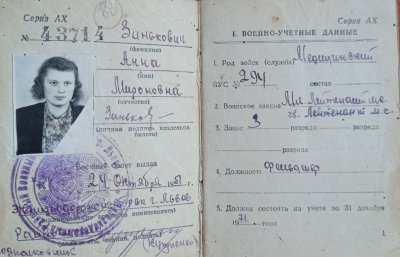 Серия АХ
№ 43714
Зинькович
(фамилия)
Анна
(имя)
Мироновна
(отчество)
(личная подпись владельца
билета)
Военный билет выдан
24 Октября 1951 г.
г. Львов
Серия АХ
I. ВОЕННО-УЧЕТНЫЕ ДАННЫЕ
1. Род войск (служба) Медицинский
ВУС № 294 состав
2. Воинское звание Мл. Лейтенант м.с.
Лейтенант м.с.
3. Запас 3 разряда разряд
разряда
4. Должность фельдшер
5. Должен состоять на учете по 31 декабря
1971 года.
1